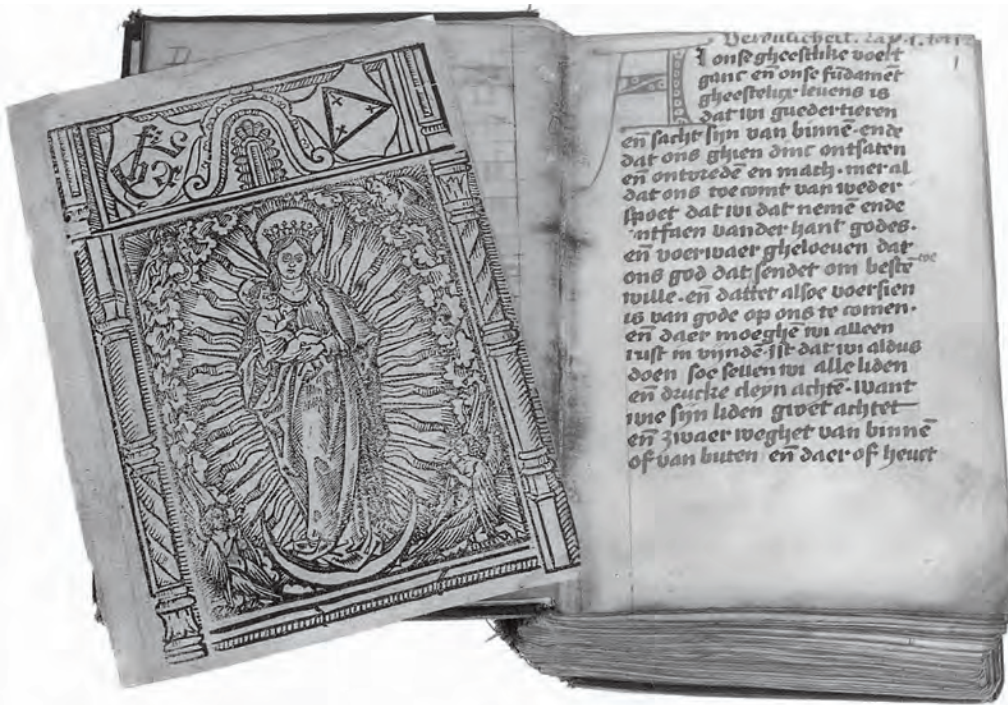 Verdulicheit. Cap. 1.
I onse gheestelike voert
ganc en̄ onse fūdamēt
gheestelijx leuens is
dat wi guedertieren
en̄ sacht sijn van binnē. ende
dat ons ghien dinc ontsaten
en̄ ontvredē en mach. mer al
dat ons toe comt van weder
spoet dat wi dat nemē ende
ntfaen vander hant godes.
en̄ voerwaer gheloeuen dat
ons god dat sendet om beste toe
wille. en̄ dattet alsoe voersien
is van gode op ons te comen.
en̄ daer moeghe wi alleen
rust in vijndē. Ist dat wi aldus
doen soe sellen wi alle liden
en̄ drucke cleyn achtē. want
wie sijn liden groet achtet
en̄ zwaer weghet van binnē
of van buten en̄ daer of heuet